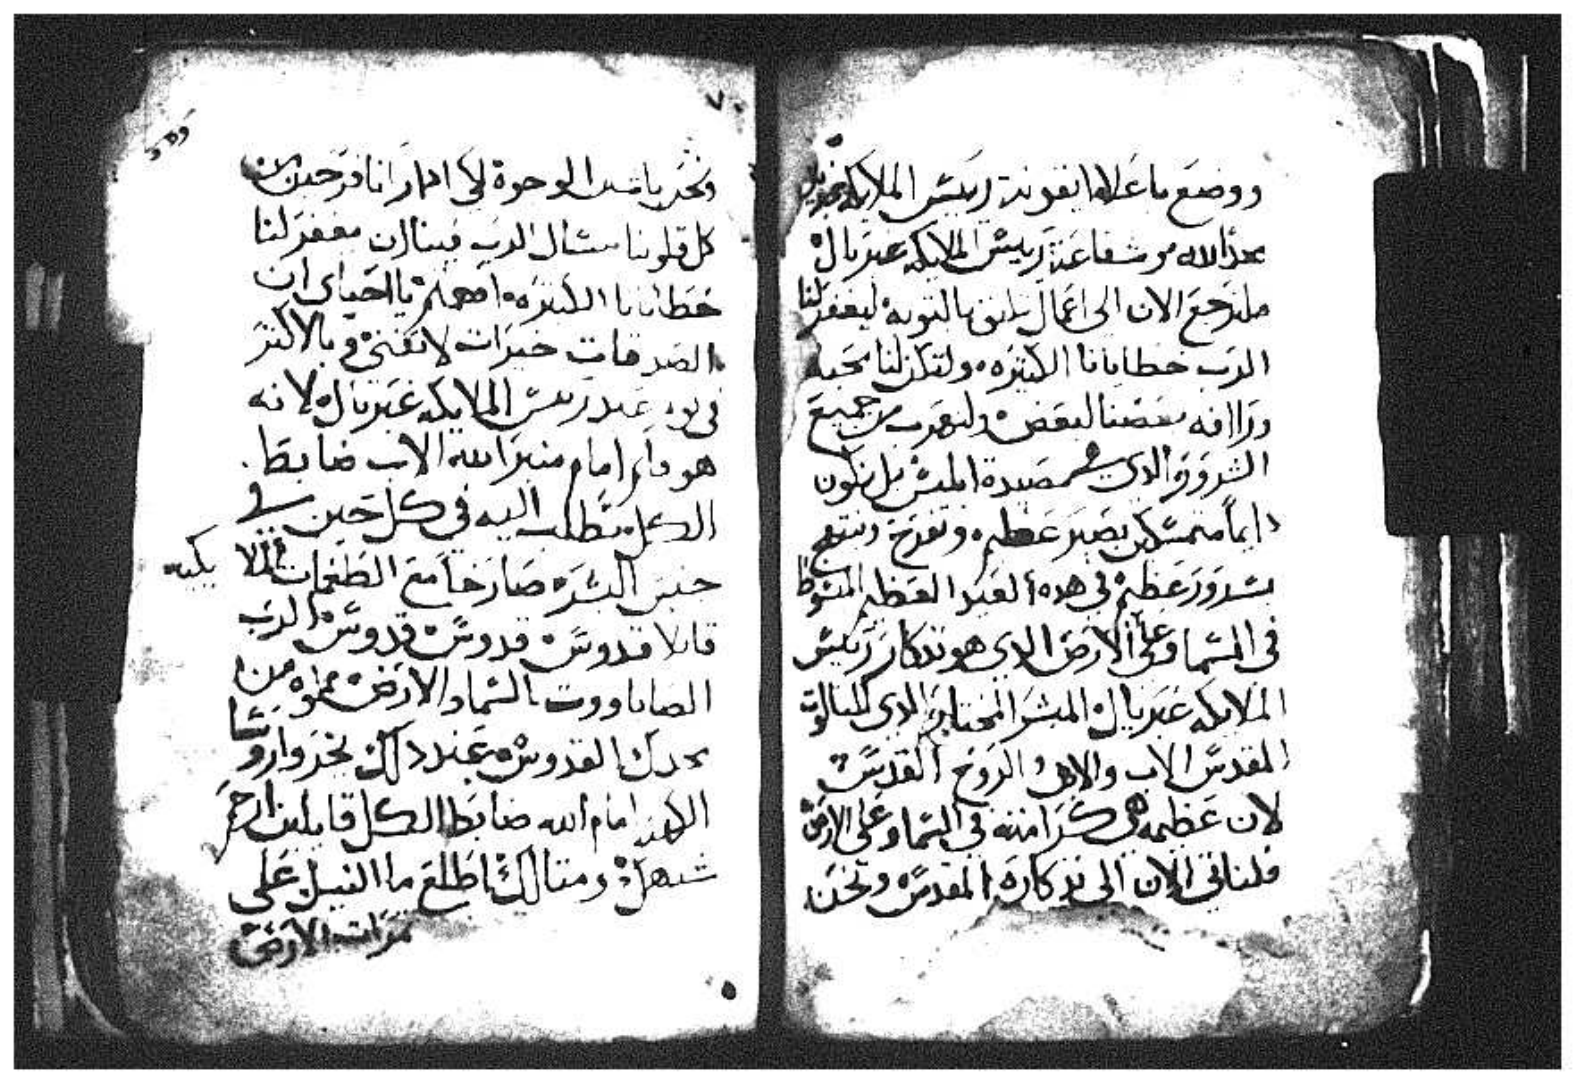 ووضع ما علاه ايقونة رييس الملايكه غبريال
هذا الاله من شفاعة رييس الملايكه غبريال
فلنرجع الان الى اعمال تليق بالتوبه ليغفر لنا
الرب خطايانا الكثيره ولتكن لنا محبه
ورافه بعضنا لبعض ولنهرب من جميع
الشرور الذي هم مصيدة ابليس بل نكون
دايماً متمسكين بصبر عظيم ونفرح ونبتهج
بسرور عظيم في هده العيد العظيم المبسوط
في السما وعلى الارض الدي هو تدكار رييس
الملايكه غبريال المبشر المختار الدي للتالوت
المقدس الاب والابن الروح القدس
لان عظيمه هى كرامته في السما وعلى الارض
فلناتي الان الى تدكاره المقدس ونحن
ونحن ياقيين الوجوه لكي ادا راانا فرحين من
كل قلوبنا يسال الرب فينا ان يغفر لنا
خطايانا الكثيره افهم يا احباي ان
الصدقات خيرات لا تفنى وبالاكتر
في يوم عيد رييس الملايكه غبريال لانه
هو قايم امام منبر الله الاب ضابط
الكل يطلب اليه في كل حين في
جنس البشره صارخاً مع الطغمات
قايلا قدوس قدوس قدوس الرب
الصاباووت السما والارض مملوه من
مجدك القدوس عند دلك يخروا روسا
الكهنه امام الله ضابط الكل قايلين ارحم
شبهك ومتالك اطلع ما النيل على
تمرات الارض